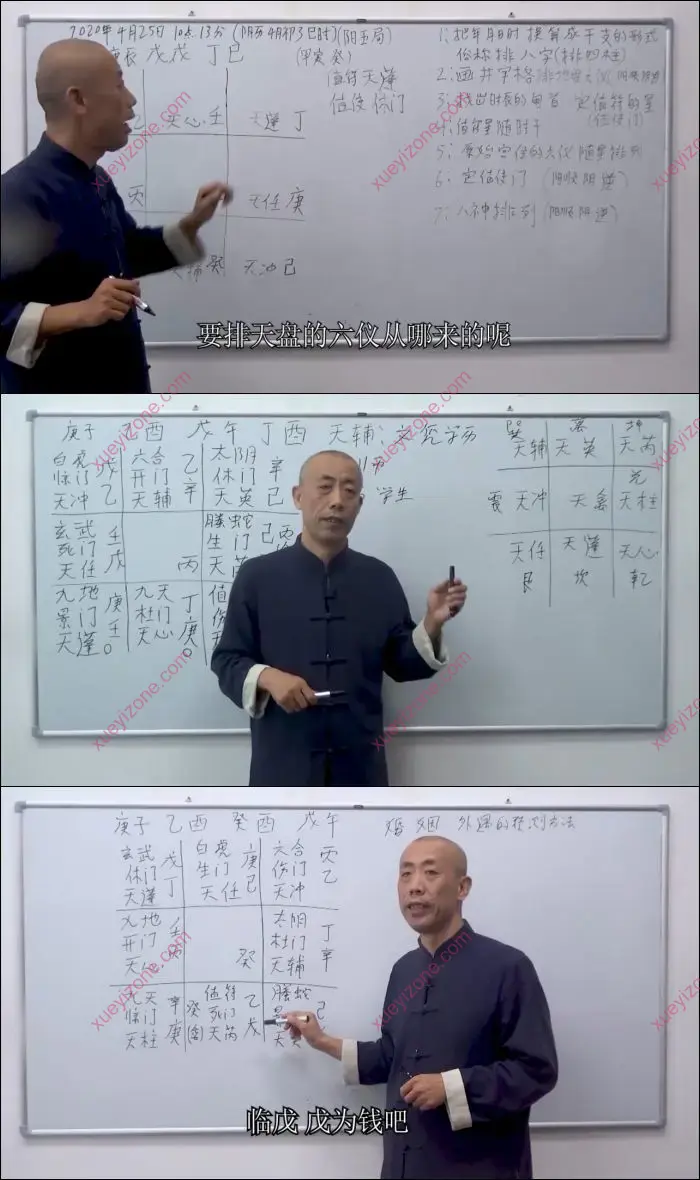 2020年4月25日 10点13分 (阴历4月初3巳时)(阳五局)
庚辰 戊戌 丁巳 (甲寅 癸)
值符天蓬
值使休门
乙 天心 壬 天蓬 丁
天任 庚
辅 癸 天冲 己
1: 把年月日时 换算成干支的形式
俗称排八字(排四柱)
2: 画井字格
3: 找出时辰的旬首 定值符的星
(值使门)
4: 值符星随时干
5: 原始定位的六仪随星排列
6: 定值使门 (阳顺阴逆)
7: 八神排列 (阳顺阴逆)
要排天盘的六仪从哪来的呢
庚子 乙酉 戊午 丁酉 天辅: 文凭学历
学生
白虎 戊 六合 乙 太阴 辛
惊门 开门 休门
天冲 乙 天辅 辛 天英 己
玄武 壬 螣蛇 己 丙
死门 生门
天任 戊 丙 天芮
九地 庚 九天 丁 值
景门 杜门 伤
天蓬 壬 天心 庚
巽 离 坤
天辅 天英 天芮
兑
震 天冲 天禽 天柱
天任 天蓬 天心
艮 坎 乾
庚子 乙酉 癸酉 戊午
婚姻 外遇的预测方法
玄武 戊 白虎 庚 六合 丙
休门 生门 伤门
天蓬 丁 天任 己 天冲 乙
九地 壬 太阴 丁
开门 杜门
天心 丙 癸 天辅 辛
九天 辛 值符 乙 螣蛇 己
惊门 癸 死门
天柱 庚 天芮 戊
临戊 戊为钱吧
xueyizone.com
xueyizone.com
xueyizone.com
xueyizone.com
xueyizone.com
xueyizone.com
xueyizone.com
xueyizone.com
xueyizone.com
xueyizone.com
xueyizone.com
xueyizone.com